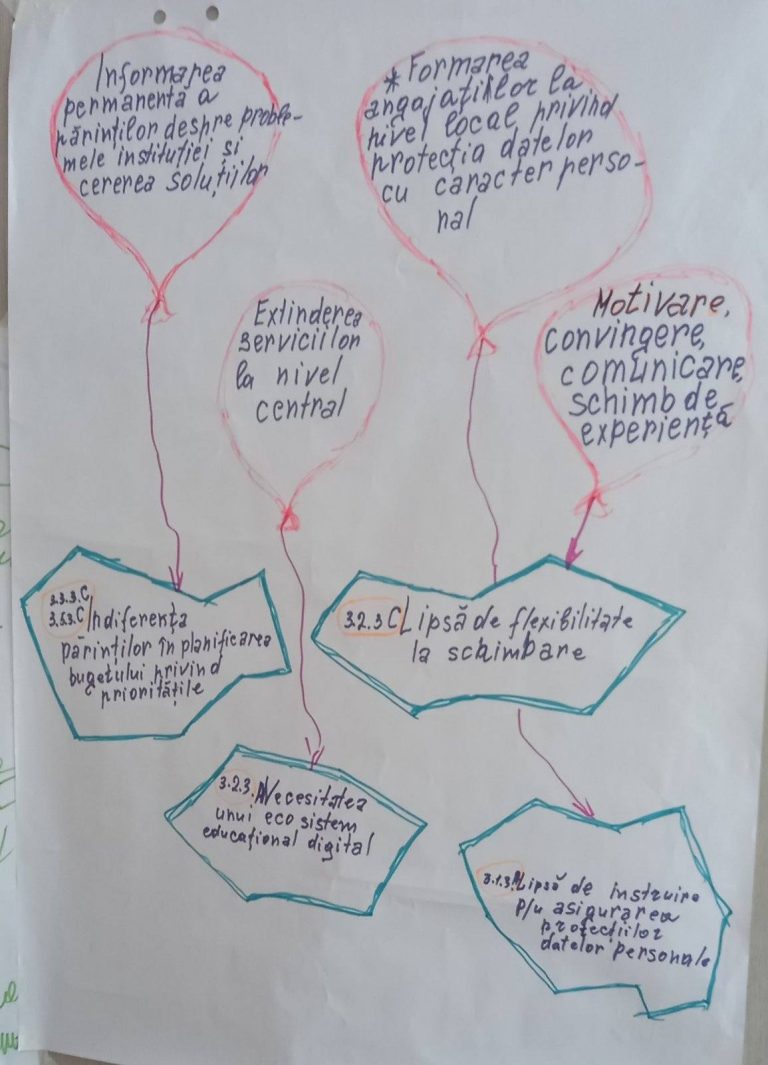 Informarea
permanentă a
părinților despre proble-
mele instituției și
cererea soluțiilor
* Formarea
angajațiilor la
nivel local privind
protecția datelor
cu caracter perso-
nal
Extinderea
serviciilor
la nivel
central
Motivare,
convingere,
comunicare,
schimb de
experiență
3.3.3.C
3.5.3.C Indiferența
părinților în planificarea
bugetului privind
prioritățile
3.2.3 C Lipsă de flexibilitate
la schimbare
3.2.3. Necesitatea
unui eco sistem
educațional digital
3.1.3. Lipsă de instruire
p/u asigurarea
protecțiilor
datelor personale